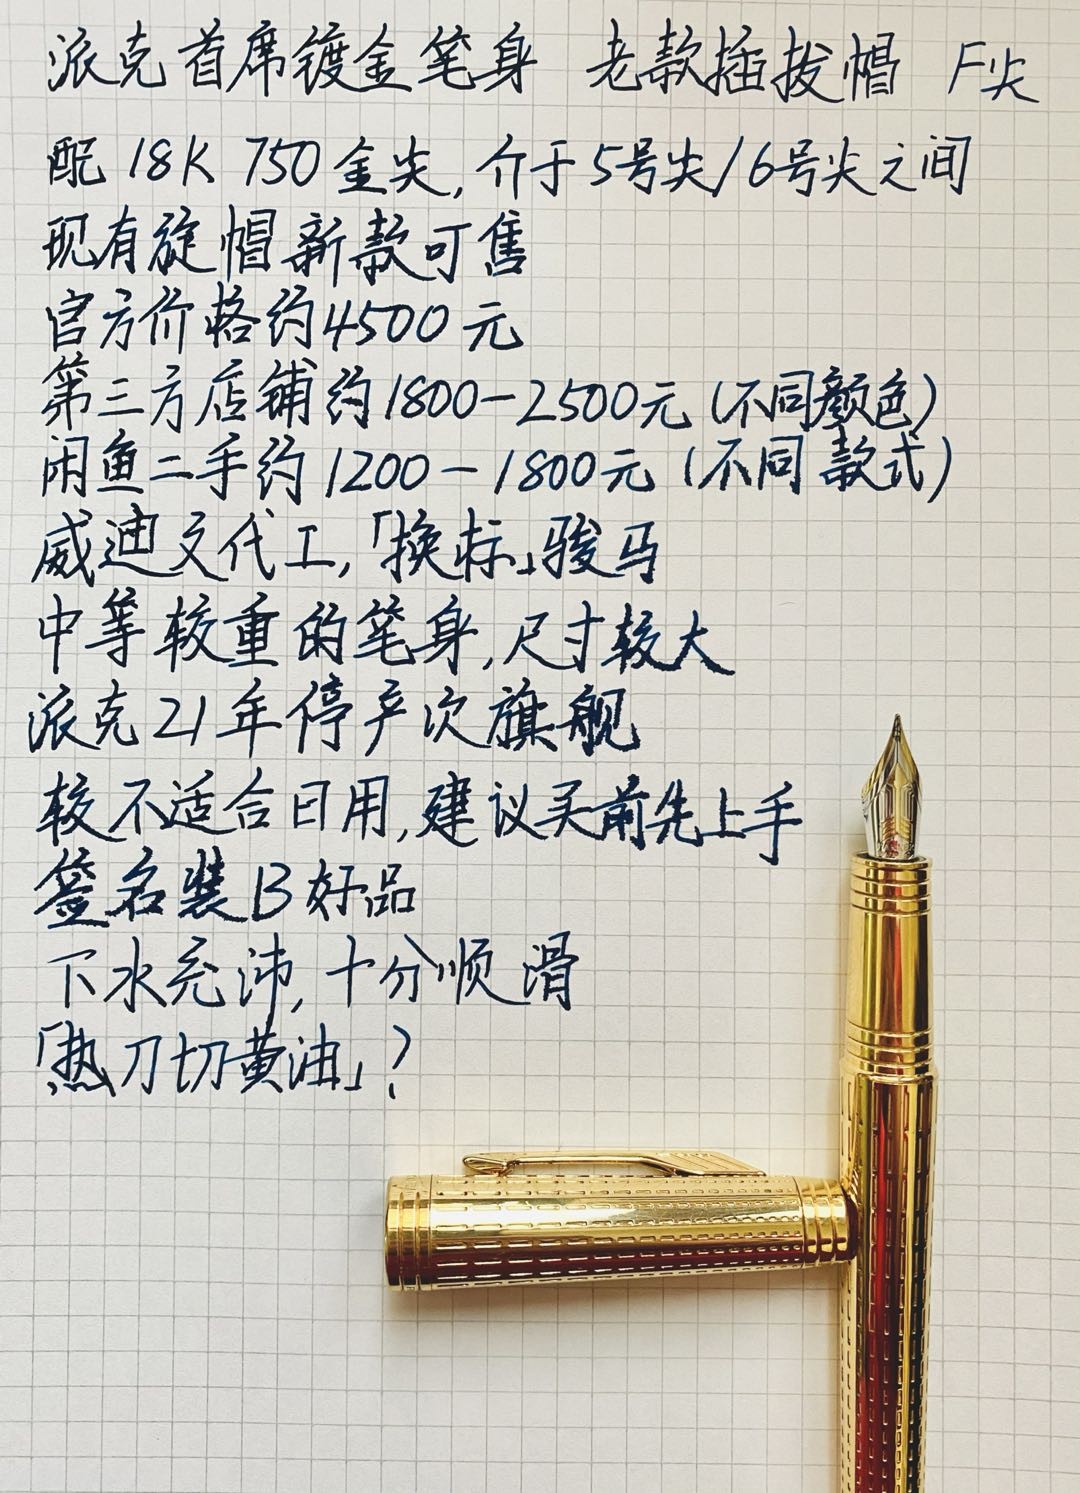 派克首席镀金笔身 老款插拔帽 F尖
配 18K 750金尖,介于5号尖/6号尖之间
现有旋帽新款可售
官方价格约4500元
第三方店铺约1800-2500元(不同颜色)
闲鱼二手约1200-1800元(不同款式)
威迪文代工,「换标」骏马
中等较重的笔身,尺寸较大
派克21年停产次旗舰
较不适合日用,建议买前先上手
签名装B好品
下水充沛,十分顺滑
「热刀切黄油」?